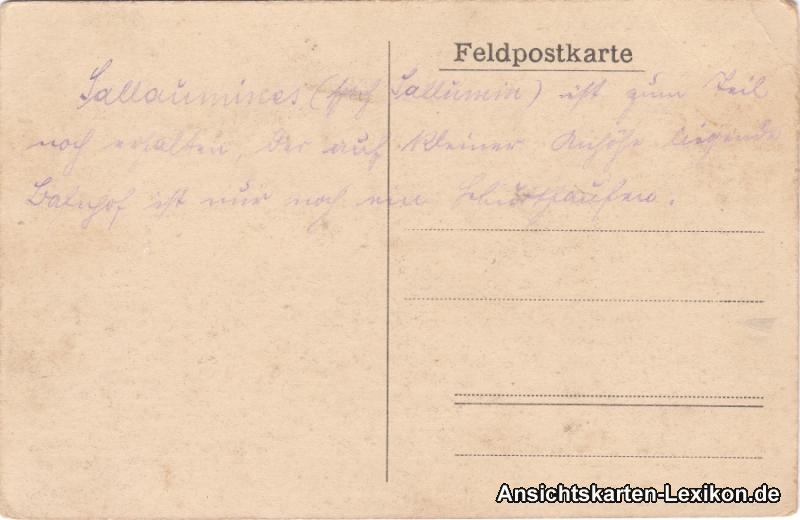 Feldpostkarte
Sallaumines (sprich Sallumin) ist zum Teil
noch erhalten, der auf kleiner Anhöhe liegende
Bahnhof ist nur noch ein Schutthaufen.
Ansichtskarten-Lexikon.de